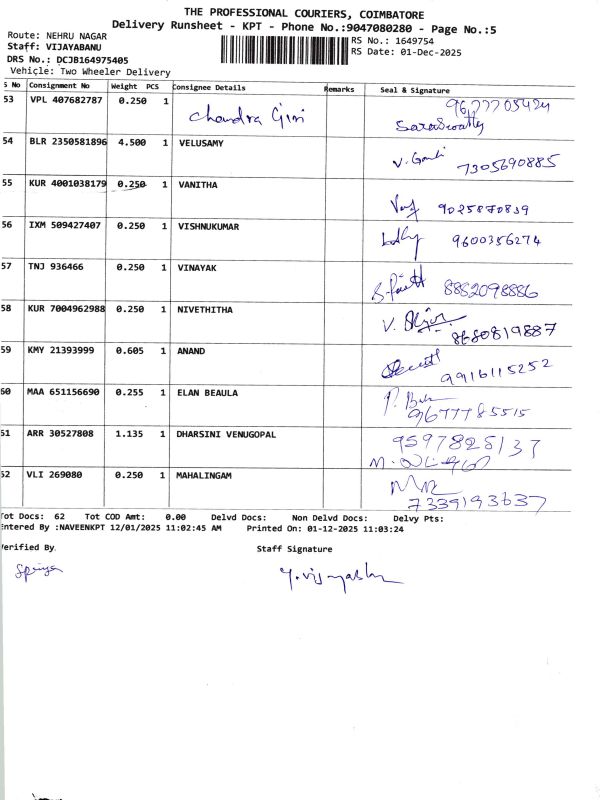 THE PROFESSIONAL COURIERS, COIMBATORE
Delivery Runsheet - KPT - Phone No.:9047080280 - Page No.:5
Route: NEHRU NAGAR
RS No.: 1649754
Staff: VIJAYABANU
RS Date: 01-Dec-2025
DRS No.: DCJB164975405
Vehicle: Two Wheeler Delivery
S No Consignment No Weight PCS Consignee Details Remarks Seal & Signature
53 VPL 407682787 0.250 1 Chandra Giri 9677705424
Saraswathy
54 BLR 2350581896 4.500 1 VELUSAMY
7305690885
55 KUR 4001038179 0.250 1 VANITHA
9025870839
56 IXM 509427407 0.250 1 VISHNUKUMAR
9600356274
57 TNJ 936466 0.250 1 VINAYAK
8882098886
58 KUR 7004962988 0.250 1 NIVETHITHA
8680819887
59 KMY 21393999 0.605 1 ANAND
9916115252
60 MAA 651156690 0.255 1 ELAN BEAULA
9677785515
61 ARR 30527808 1.135 1 DHARSINI VENUGOPAL 9597828137
62 VLI 269080 0.250 1 MAHALINGAM
7339193637
Tot Docs: 62 Tot COD Amt: 0.00 Delvd Docs: Non Delvd Docs: Delvy Pts:
Entered By :NAVEENKPT 12/01/2025 11:02:45 AM Printed On: 01-12-2025 11:03:24
Verified By
Staff Signature